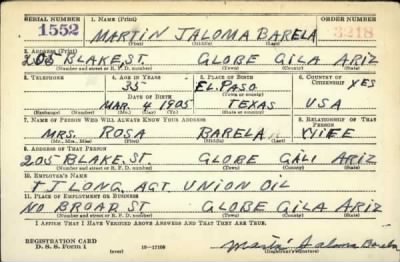 SERIAL NUMBER 1. NAME (Print) ORDER NUMBER
1552 MARTIN JALOMA BARELA 3218
(First) (Middle) (Last)
2. ADDRESS (Print)
205 BLAKE, ST. GLOBE GILA ARIZ
(Number and street or R. F. D. number) (Town) (County) (State)
3. TELEPHONE 4. AGE IN YEARS 5. PLACE OF BIRTH 6. COUNTRY OF CITIZENSHIP
35 EL.PASO YES
DATE OF BIRTH (Town or county)
MAR. 4 1905 TEXAS USA
(Exchange) (Number) (Mo.) (Day) (Yr.) (State or country)
7. NAME OF PERSON WHO WILL ALWAYS KNOW YOUR ADDRESS 8. RELATIONSHIP OF THAT PERSON
MRS. ROSA BARELA WIFE
(Mr., Mrs., Miss) (First) (Middle) (Last)
9. ADDRESS OF THAT PERSON
205 BLAKE, ST. GLOBE GILI ARIZ
(Number and street or R. F. D. number) (Town) (County) (State)
10. EMPLOYER'S NAME
T J LONG, AGT. UNION OIL
11. PLACE OF EMPLOYMENT OR BUSINESS
NO BROAD ST GLOBE GILA ARIZ
(Number and street or R. F. D. number) (Town) (County) (State)
I AFFIRM THAT I HAVE VERIFIED ABOVE ANSWERS AND THAT THEY ARE TRUE.
REGISTRATION CARD
D. S. S. Form 1 (over) 16—17105 Martin Jaloma Barela